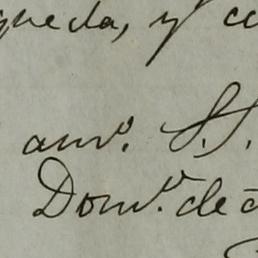 queda, y
amo. S. S.
Domo. de